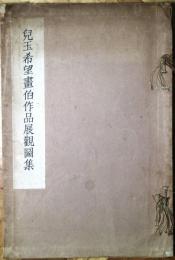 兒玉希望畫伯作品展觀圖集